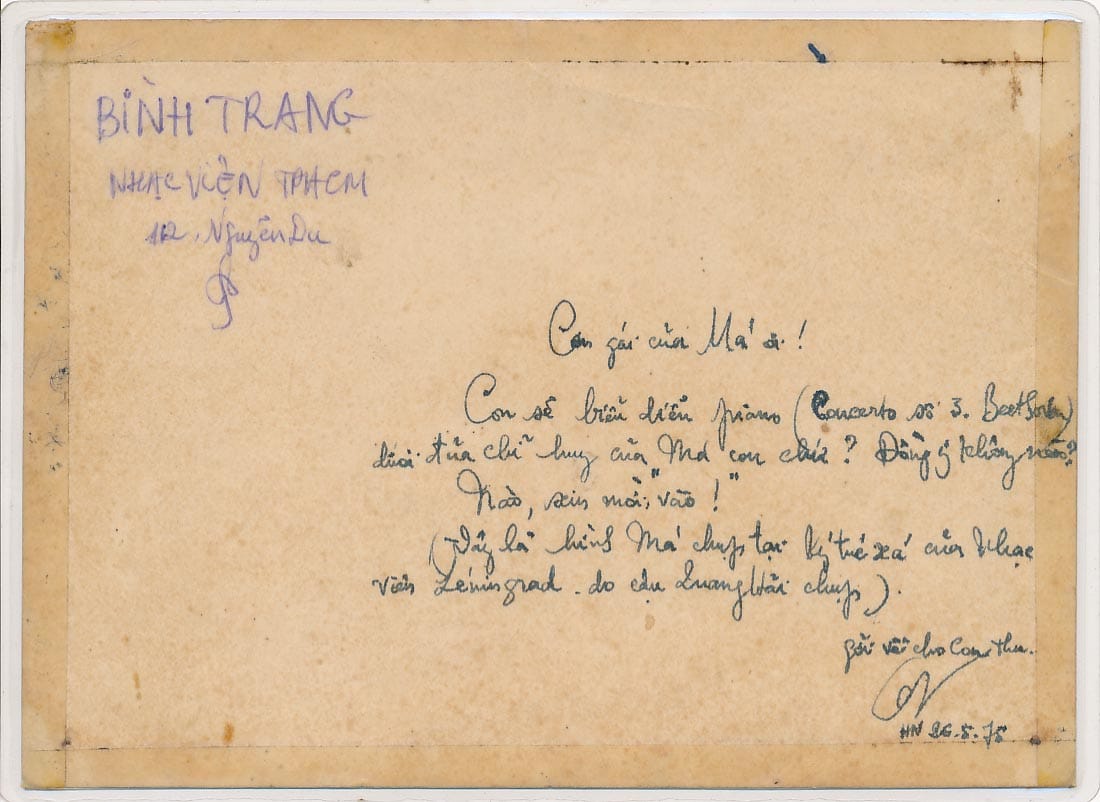 BÌNH TRANG
NHẠC VIỆN TPHCM
112. Nguyễn Du
Con gái của Má ơi!
Con sẽ biểu diễn piano (Concerto số 3. Beethoven)
dưới đũa chỉ huy của Má con chứ? Đồng ý không nào?
Nào, xin mời "vào!"
(Đây là hình Má chụp tại ký túc xá của Nhạc
viện Léningrad. do cậu Quang Hải chụp).
gởi về cho Con thu.
HN 26.5.75